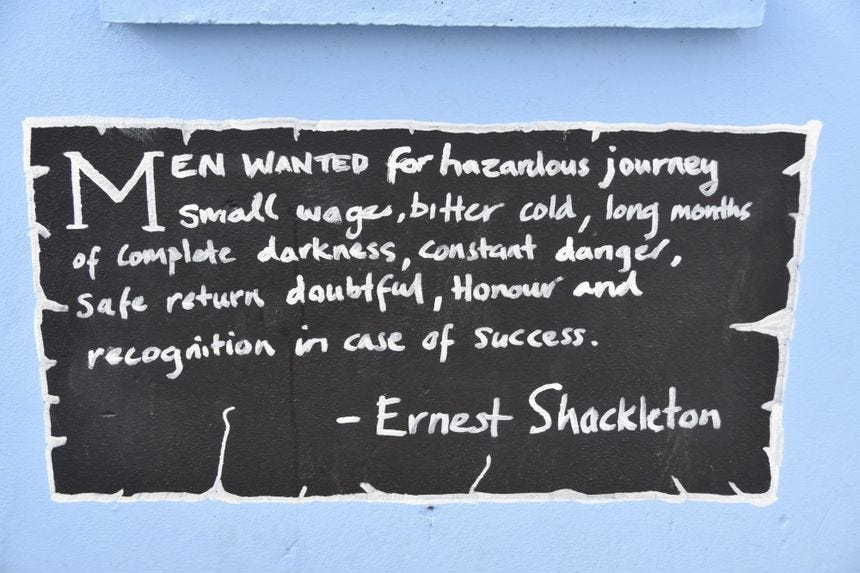 MEN WANTED for hazardous journey
small wages, bitter cold, long months
of complete darkness, constant danger,
Safe return doubtful, Honour and
recognition in case of success.
- Ernest Shackleton